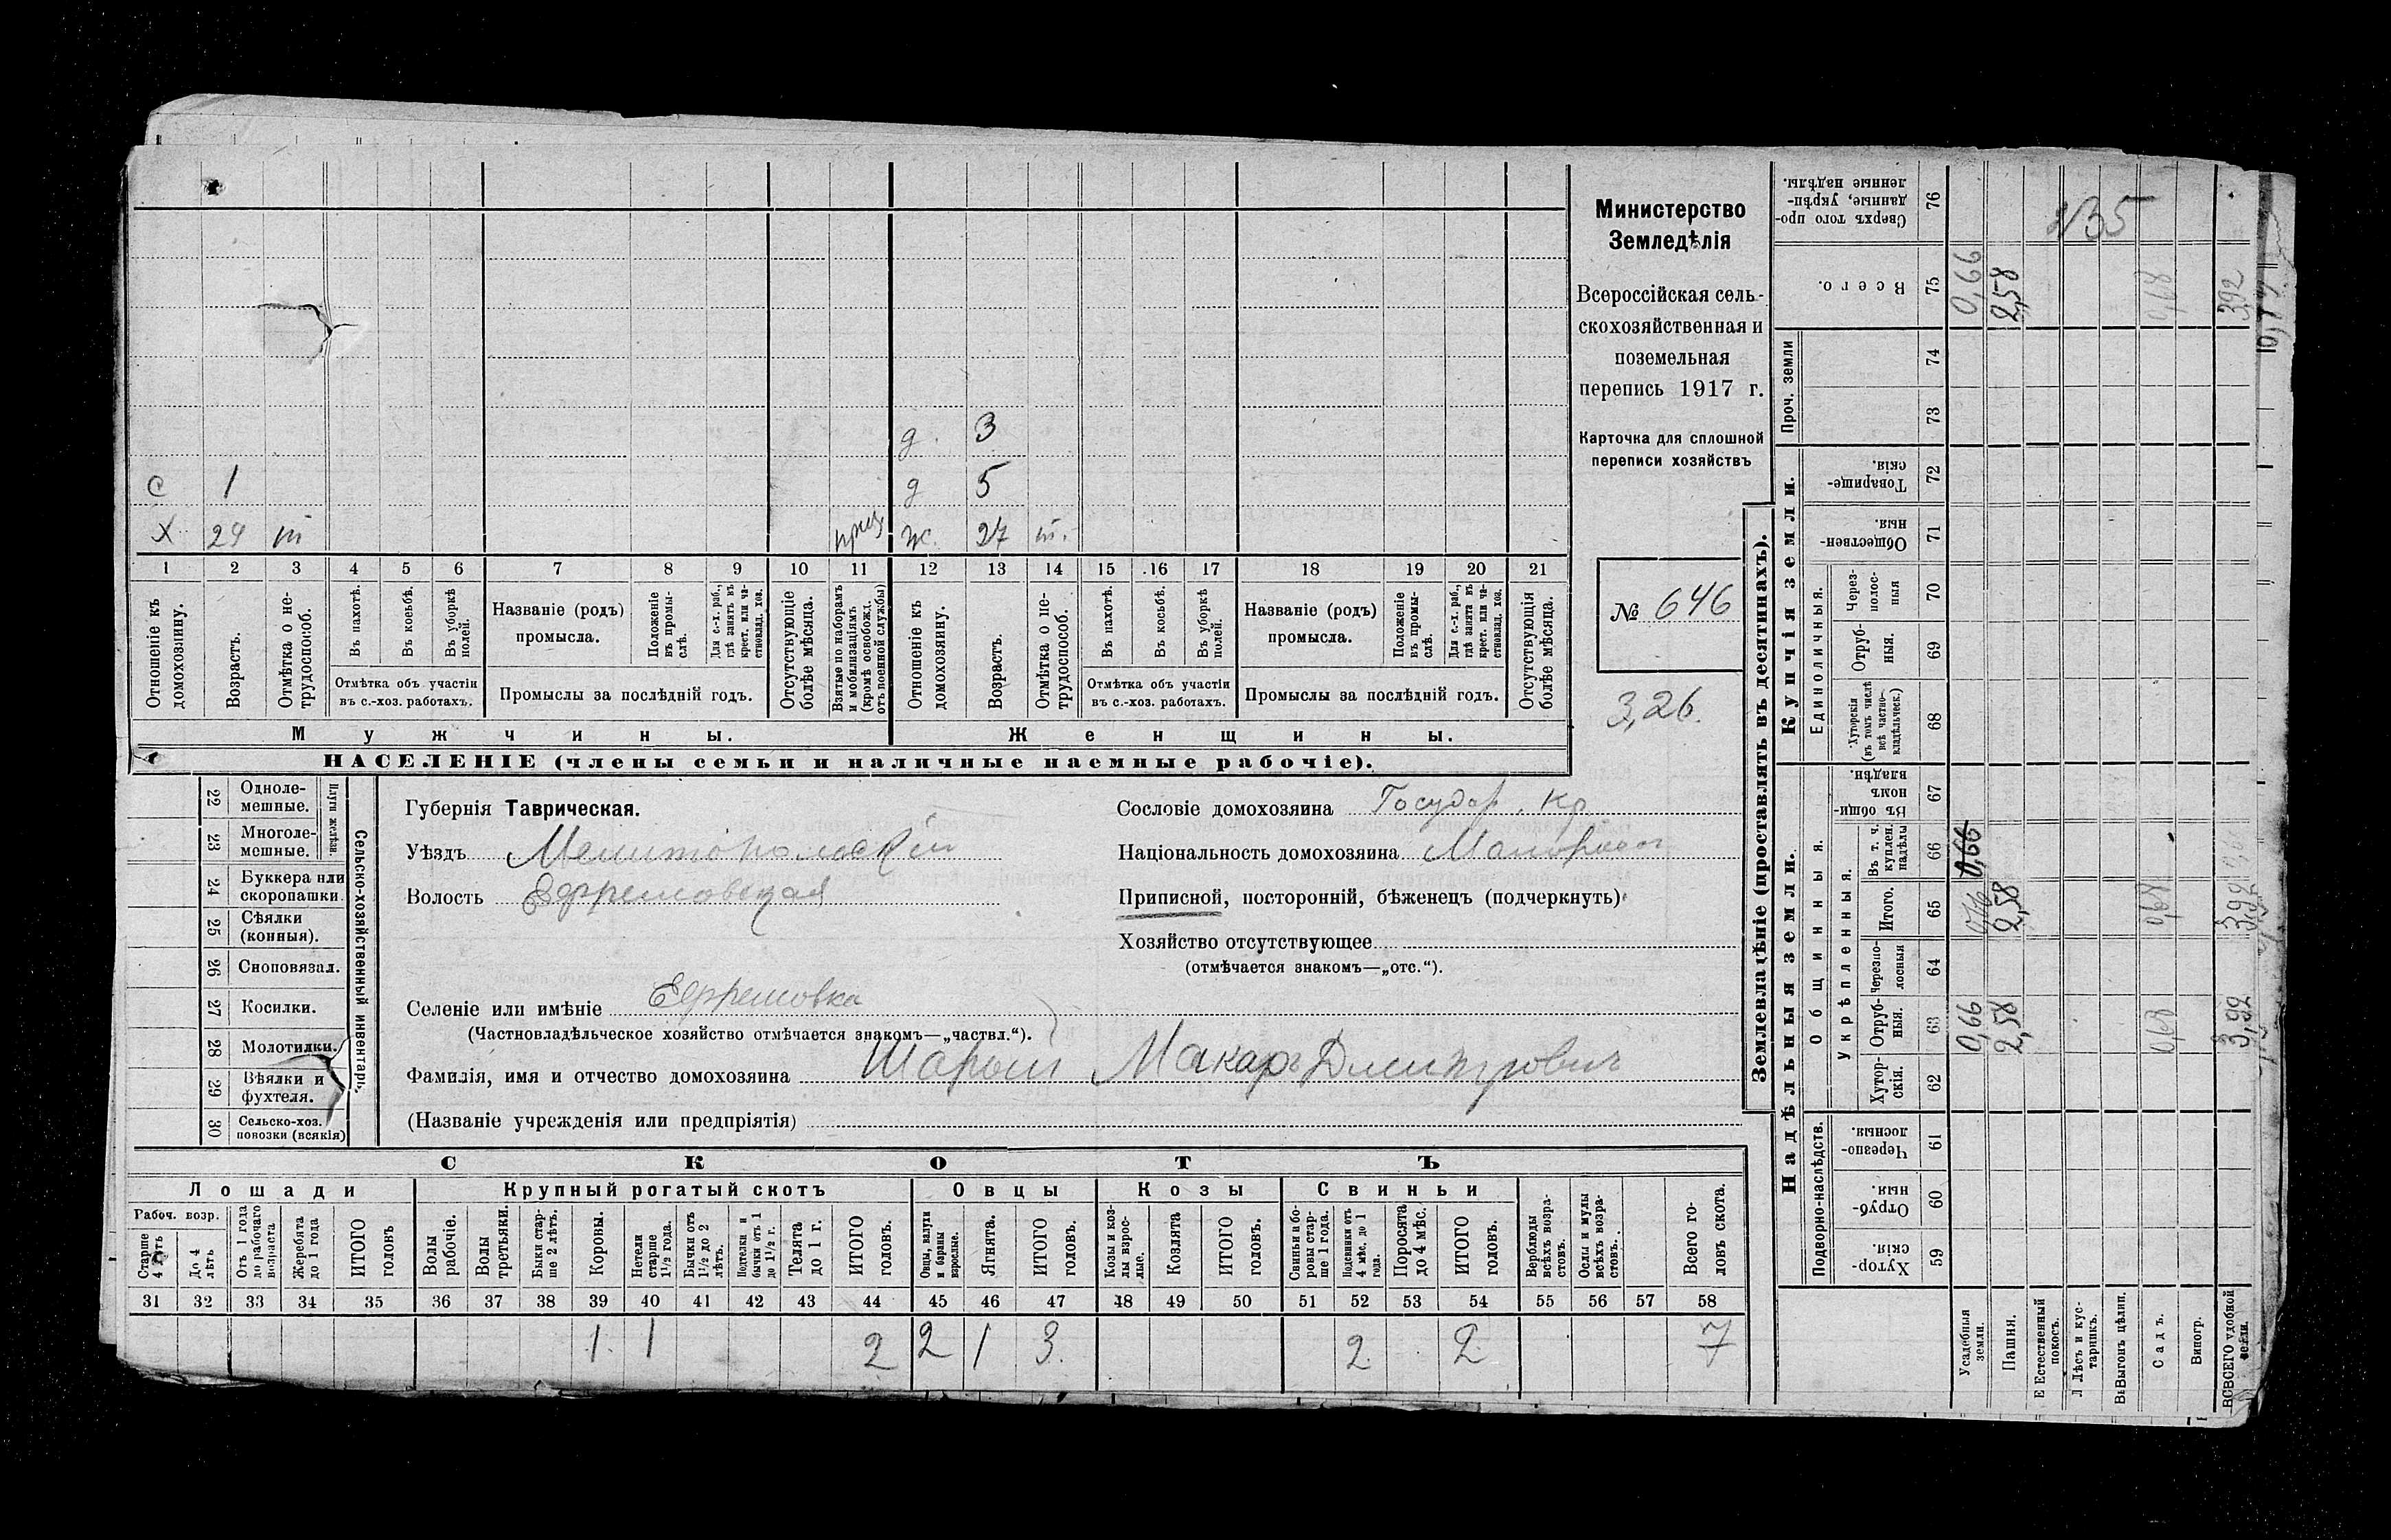 Министерство
Земледѣлія
Всероссійская сель-
скохозяйственная и
поземельная
перепись 1917 г.
Карточка для сплошной
переписи хозяйствъ
№ 646
3,26.
д. 3
с 1 д 5
х 24 т ж. 27 т.
1 2 3 4 5 6 7 8 9 10 11 12 13 14 15 16 17 18 19 20 21
Отношеніе къ домохозяину.
Возрастъ.
Отмѣтка о не-трудоспособ.
Въ пахотѣ.
Въ косьбѣ.
Въ уборкѣ полей.
Отмѣтка объ участіи
въ с.-хоз. работахъ.
Названіе (родъ)
промысла.
Положеніе въ промы-слѣ.
Для с.-х. раб., гдѣ занятъ въ крест. или ча-стновлад. хоз.
Промыслы за послѣдній годъ.
Отсутствующіе болѣе мѣсяца.
Взятые по наборамъ и мобилизаціямъ (кромѣ освобожд. отъ военной службы)
Отношеніе къ домохозяину.
Возрастъ.
Отмѣтка о не-трудоспособ.
Въ пахотѣ.
Въ косьбѣ.
Въ уборкѣ полей.
Отмѣтка объ участіи
въ с.-хоз. работахъ.
Названіе (родъ)
промысла.
Положеніе въ промы-слѣ.
Для с.-х. раб., гдѣ занята въ крест. или ча-стновлад. хоз.
Промыслы за послѣдній годъ.
Отсутствующія болѣе мѣсяца.
Мужчины. Женщины.
НАСЕЛЕНІЕ (члены семьи и наличные наемные рабочіе).
Сельско-хозяйственный инвентарь.
Плуги желѣзн.
22 Одноле-мешные.
23 Многоле-мешные.
24 Буккера или скоропашки.
25 Сѣялки (конныя).
26 Сноповязал.
27 Косилки.
28 Молотилки.
29 Вѣялки и фухтеля.
30 Сельско-хоз. повозки (всякія)
Губернія Таврическая.
Уѣздъ Мелитопольскій
Волость Ефремовская
Сословіе домохозяина Государ. Кр
Національность домохозяина Малоросс
Приписной, посторонній, бѣженецъ (подчеркнуть)
Хозяйство отсутствующее
(отмѣчается знакомъ—„отс.“).
Селеніе или имѣніе Ефремовка
(Частновладѣльческое хозяйство отмѣчается знакомъ—„частвл.“).
Фамилія, имя и отчество домохозяина Шарый Макаръ Дмитрович
(Названіе учрежденія или предпріятія)
СКОТЪ
Лошади Крупный рогатый скотъ Овцы Козы Свиньи
Рабоч. возр.
Старше 4 лѣтъ
До 4 лѣтъ
Отъ 1 года до рабочаго возраста
Жеребята до 1 года
ИТОГО головъ
Волы рабочіе.
Волы третьяки.
Быки стар-ше 2 лѣтъ.
Коровы.
Нетели старше 1 1/2 года.
Бычки отъ 1 1/2 до 2 лѣтъ.
Подтелки и бычки отъ 1 до 1 1/2 г.
Телята до 1 г.
ИТОГО головъ.
Овцы, валухи и бараны взрослые.
Ягнята.
ИТОГО головъ.
Козы и коз-лы взрос-лые.
Козлята
ИТОГО головъ.
Свиньи и бо-ровы стар-ше 1 года.
Подсвинки отъ 4 мѣс. до 1 года.
Поросята до 4 мѣс.
ИТОГО головъ.
Верблюды всѣхъ возра-стовъ.
Ослы и мулы всѣхъ возра-стовъ.
Всего го-ловъ скота.
31 32 33 34 35 36 37 38 39 40 41 42 43 44 45 46 47 48 49 50 51 52 53 54 55 56 57 58
1. 1 2 2 1 3. 2 2 7
Землевладѣніе (проставлять въ десятинахъ).
Купчія земли.
Надѣльныя земли.
Сверхъ того про-данные, укрѣп-ленные надѣлы. 76
Всего. 75 0,66 2,58 0,68 3,92
Проч. земли 74
73
Товарище-скія. 72
Обществен-ныя. 71
Единоличныя.
Через-полос-ныя 70
Отруб-ныя. 69
Хуторскія (въ томъ числѣ всѣ частно-владѣльческ.) 68
Общинныя.
Въ общи-номъ владѣн. 67
Укрѣпленныя.
Въ т. ч. куплен. надѣлы 66 0,66
Итого. 65 2,58 0,68 3,92
Черезпо-лосныя 64
Отруб-ныя. 63 0,66 2,58 0,68 3,92
Хутор-скія. 62
Подворно-наслѣдств.
Черезпо-лосныя. 61
Отруб-ныя 60
Хутор-скія. 59
Усадебныя земли.
Пашня.
Естественный покосъ.
Лѣсъ и кус-тарникъ.
Выгонъ цѣлин.
Садъ.
Виногр.
ВСЕГО удобной земли.